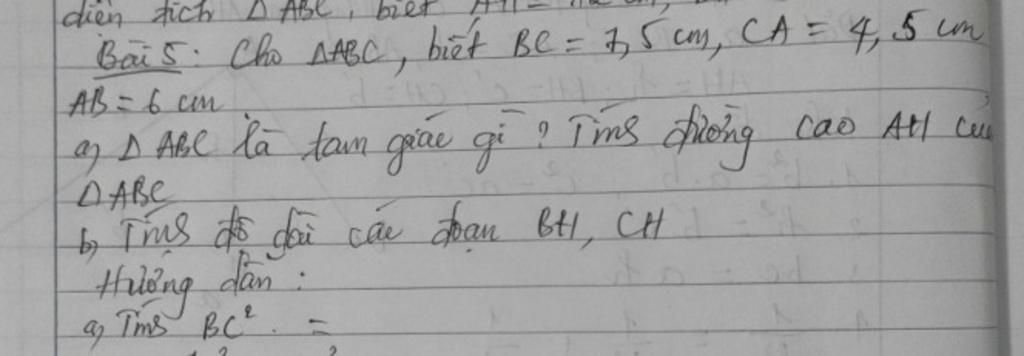 diện tích Δ ABC, biết AH =
Bài 5: Cho ΔABC, biết BC = 7,5 cm, CA = 4,5 cm
AB = 6 cm
a) Δ ABC là tam giác gì? Tính đường cao AH của
ΔABC
b) Tính độ dài các đoạn BH, CH
Hướng dẫn:
a) Tính BC² =